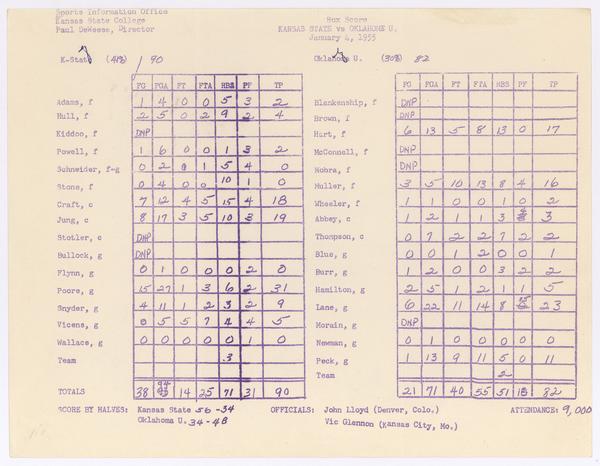 Sports Information Office
Kansas State College
Paul DeWeese, Director
Box Score
KANSAS STATE vs OKLAHOMA U.
January 4, 1955
K-State (41%) 90
Oklahoma U. (30%) 82
FG FGA FT FTA RBS PF TP
Adams, f 1 4 0 0 5 3 2
Hull, f 2 5 0 2 9 2 4
Kiddoo, f DNP
Powell, f 1 6 0 0 1 3 2
Schneider, f-g 0 2 0 1 5 4 0
Stone, f 0 4 0 0 10 1 0
Craft, c 7 12 4 5 15 4 18
Jung, c 8 17 3 5 10 3 19
Stotler, c DNP
Bullock, g DNP
Flynn, g 0 1 0 0 0 2 0
Poore, g 15 27 1 3 6 2 31
Snyder, g 4 11 1 2 3 2 9
Vicens, g 0 5 5 7 4 4 5
Wallace, g 0 0 0 0 0 1 0
Team 3
TOTALS 38 94 14 25 71 31 90
FG FGA FT FTA RBS PF TP
Blankenship, f DNP
Brown, f DNP
Hart, f 6 13 5 8 13 0 17
McConnell, f DNP
Nohra, f DNP
Muller, f 3 5 10 13 8 4 16
Wheeler, f 1 1 0 0 1 0 2
Abbey, c 1 2 1 1 3 3
Thompson, c 0 7 2 2 7 2 2
Blue, g 0 0 1 2 0 0 1
Burr, g 1 2 0 0 3 2 2
Hamilton, g 2 5 1 2 1 1 5
Lane, g 6 22 11 14 8 23
Morain, g DNP
Newman, g 0 1 0 0 0 0 0
Peck, g 1 13 9 11 5 0 11
Team 2
21 71 40 55 51 82
SCORE BY HALVES: Kansas State 56-34 OFFICIALS: John Lloyd (Denver, Colo.) ATTENDANCE: 9,000
Oklahoma U. 34-48 Vic Glennon (Kansas City, Mo.)